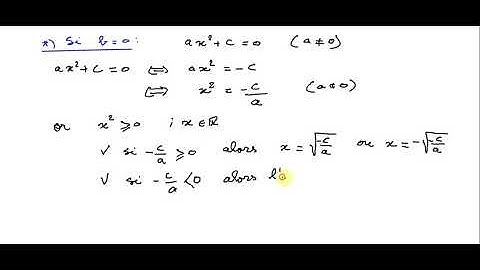 *) Si b=0: ax²+c=0 (a≠0)
ax²+c=0 ⟺ ax²=-c
⟺ x²=-c/a (a≠0)
or x²⩾0 ; x∈ℝ
✓ si -c/a ⩾0 alors x=√(-c/a) ou x=-√(-c/a)
✓ si -c/a <0 alors l'